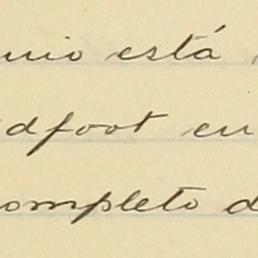 nio está
dfoot en
completo d